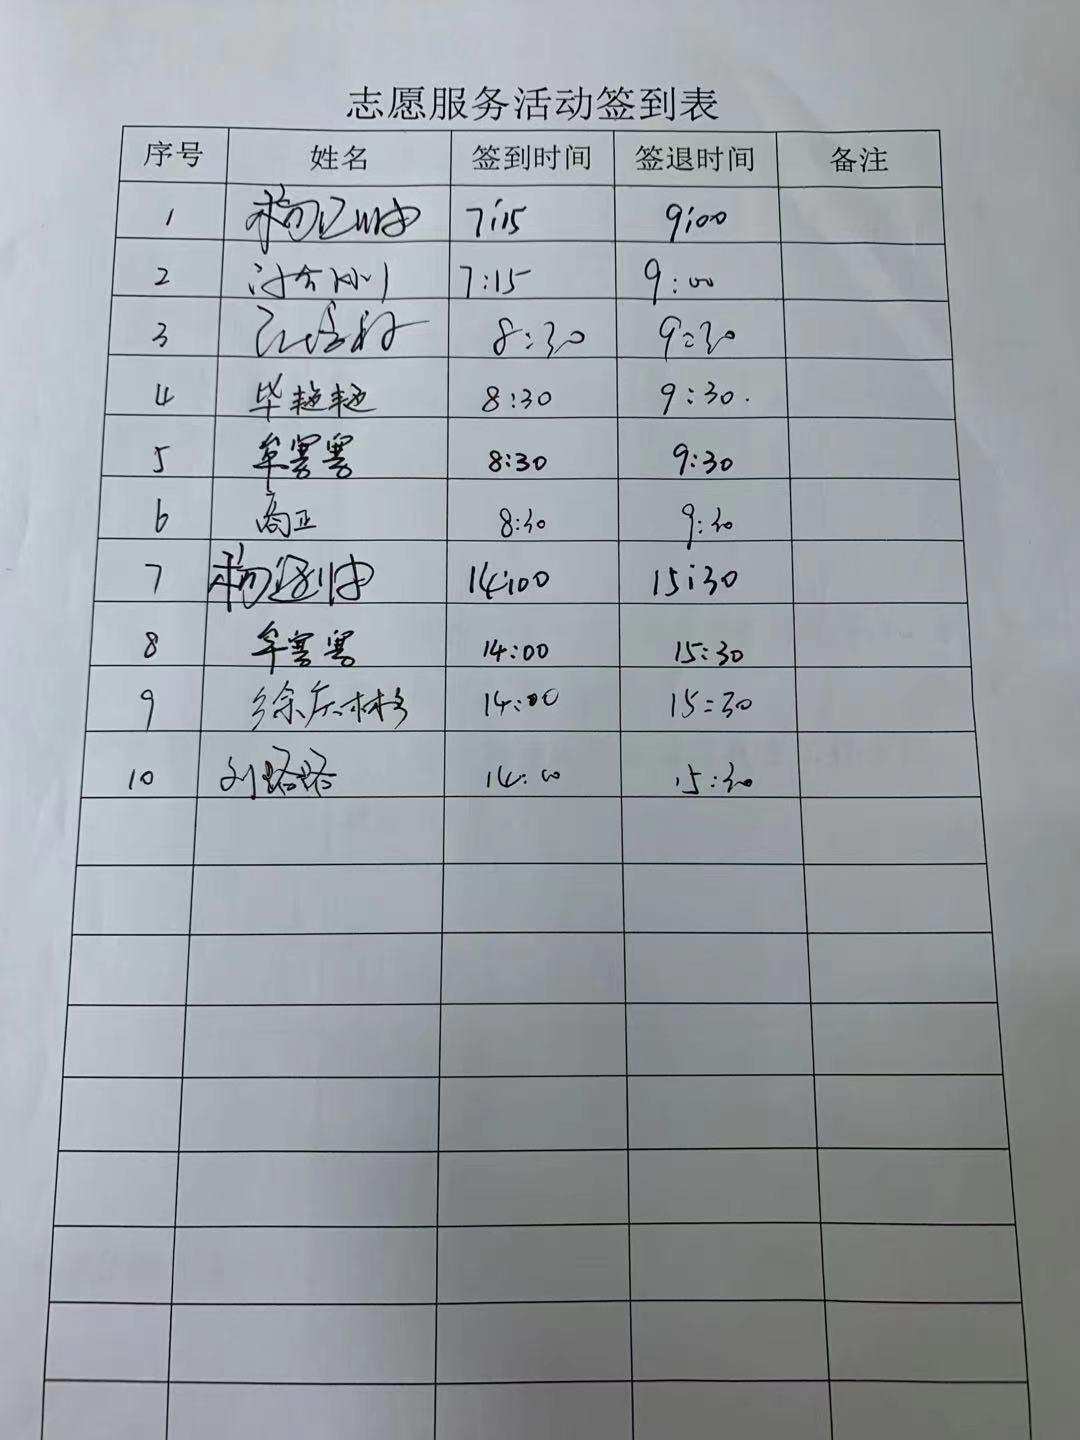 志愿服务活动签到表
序号 姓名 签到时间 签退时间 备注
1 7:15 9:00
2 7:15 9:00
3 8:30 9:30
4 毕艳艳 8:30 9:30.
5 牟霄霄 8:30 9:30
6 商正 8:30 9:30
7 14:00 15:30
8 牟霄霄 14:00 15:30
9 徐庆林 14:00 15:30
10 刘塔塔 14:00 15:30